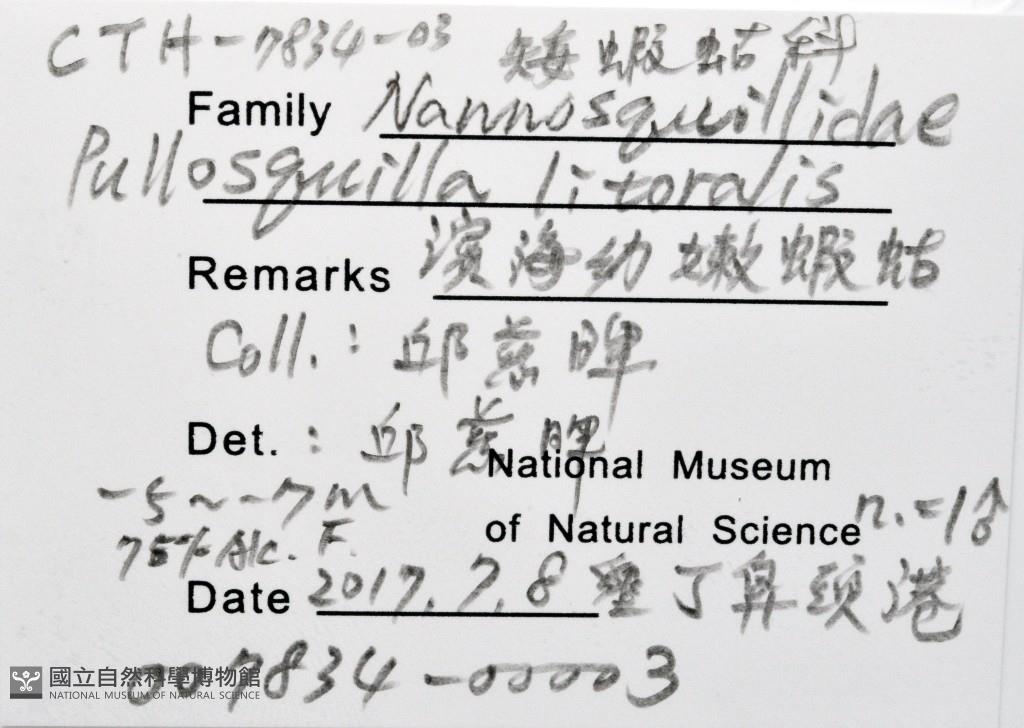 CTH-7834-03 矮蝦蛄科
Family Nannosquillidae
Pullosquilla litoralis
Remarks 濱海幼嫩蝦蛄
Coll.: 邱慈暉
Det.: 邱慈暉
National Museum
-5~-7m
of Natural Science n.=1♂
75% Alc. F.
Date 2017.7.8 墾丁鼻頭港
007834-00003
國立自然科學博物館
NATIONAL MUSEUM OF NATURAL SCIENCE